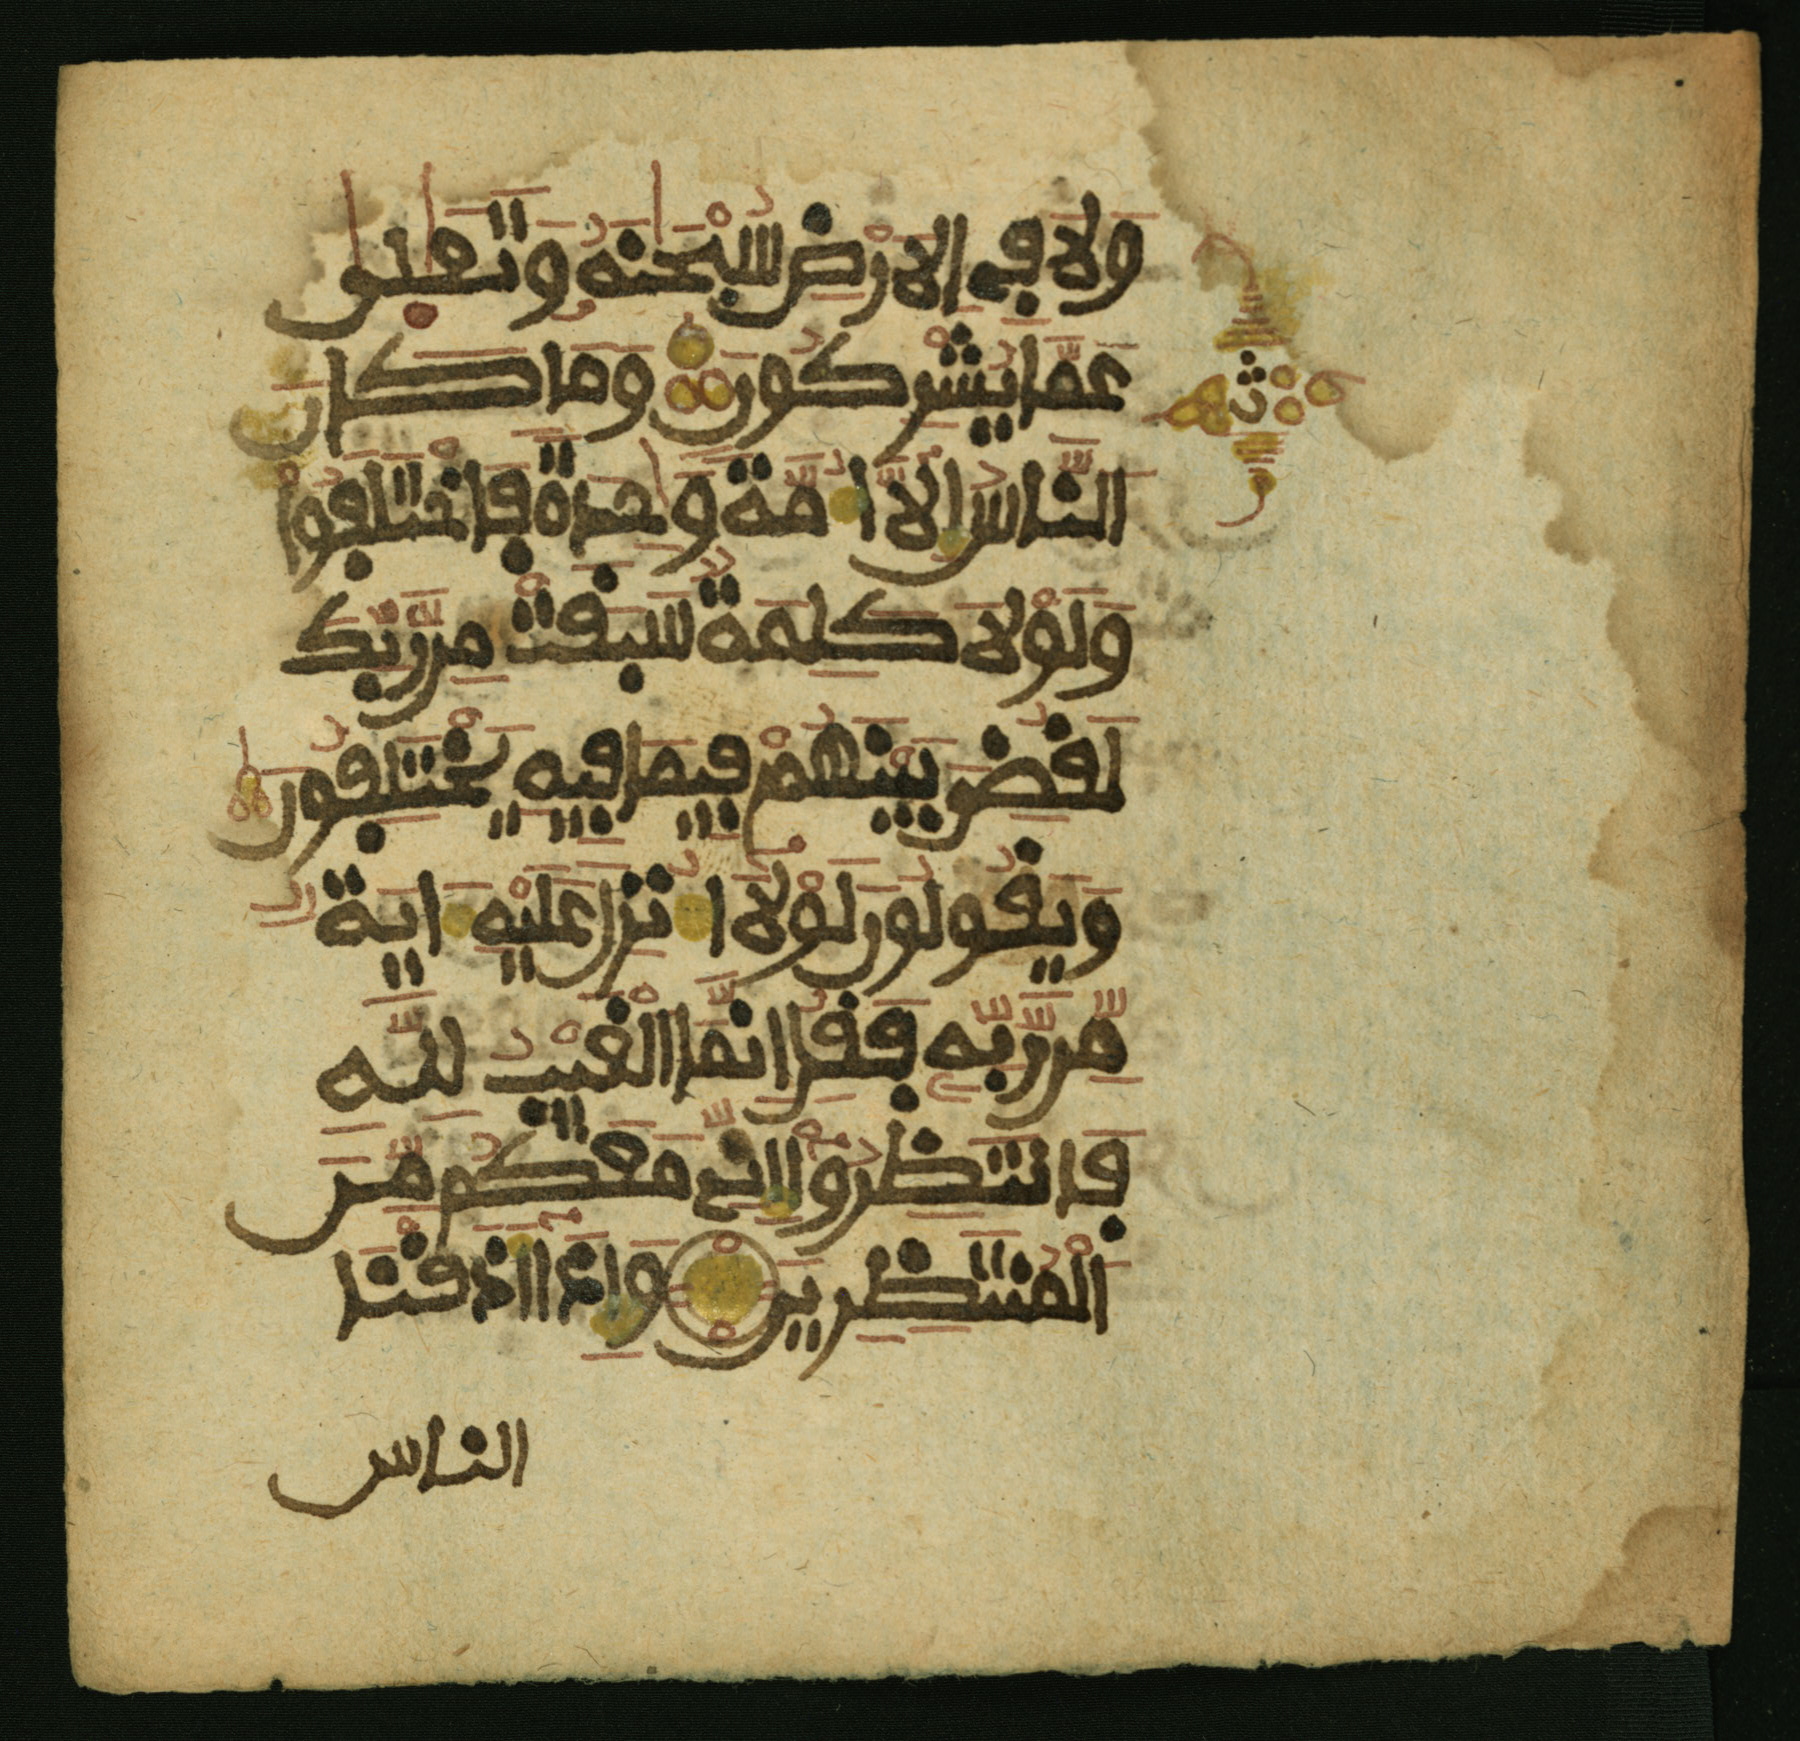 وَلَا فِي الَارْضِ سُبْحَٰنَهُ وَتَعَٰلَىٰ
عَمَّا يُشْرِكُونَ وَمَا كَانَ
النَّاسُ إِلَّا أُمَّةً وَٰحِدَةً فَاخْتَلَفُوا
وَلَوْلَا كَلِمَةٌ سَبَقَتْ مِن رَّبِّكَ
لَقُضِيَ بَيْنَهُمْ فِيمَا فِيهِ يَخْتَلِفُونَ
وَيَقُولُونَ لَوْلَا أُنزِلَ عَلَيْهِ ءَايَةٌ
مِّن رَّبِّهِ فَقُلِ انَّمَا الْغَيْبُ لِلَّهِ
فَانتَظِرُوا إِنِّي مَعَكُم مِّنَ
الْمُنتَظِرِينَ وَإِذَا أَذَقْنَا
الناس
ث